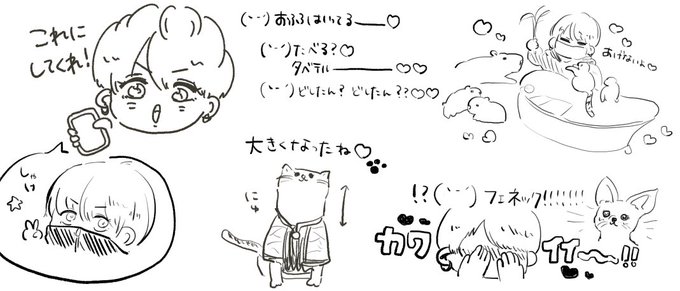 これに
してくれ!
しゃけ
(、、)おふろはいってる——♡
(、、)たべる?♡
タベテル————♡♡
(、、)どしたん?どしたん??♡♡
あげないよ♡
大きくなったね♡
にゅ
!?(、、)フェネック!!!!!!
カワイイ〜!!